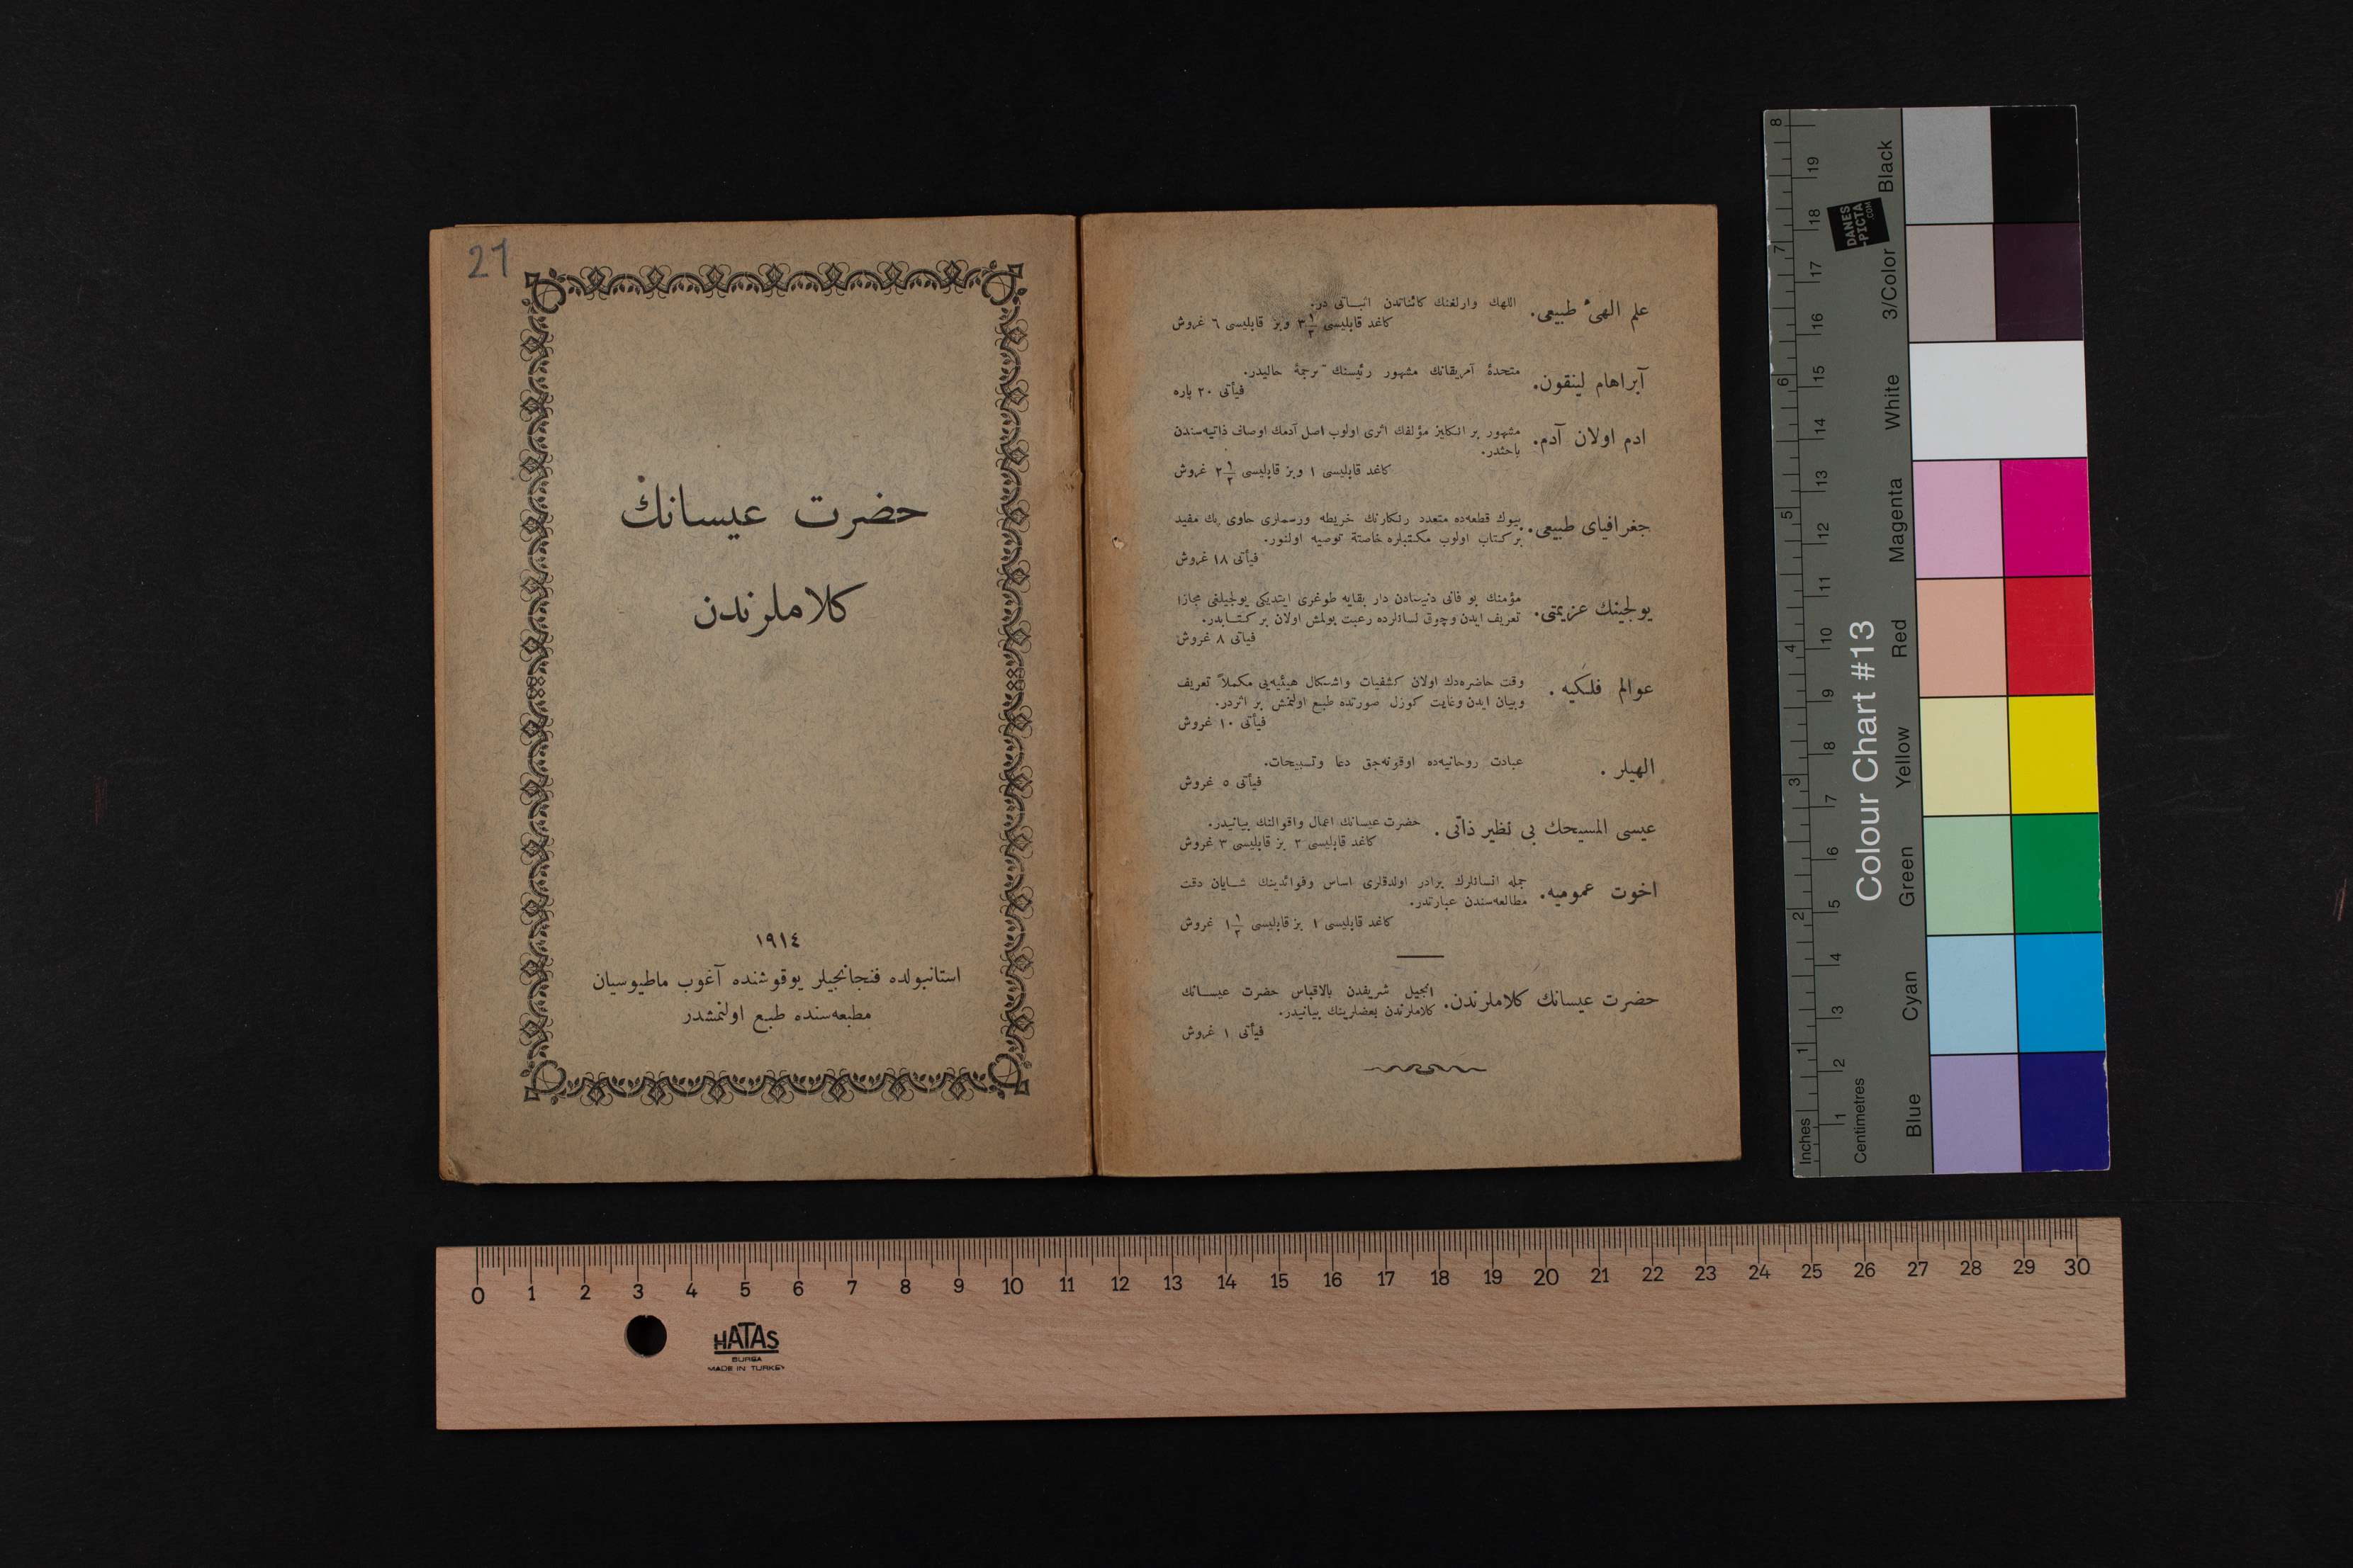 21
حضرت عيسانك
كلاملرندن
١٩١٤
استانبولده فنجانجيلر يوقوشنده آغوب ماطيوسيان
مطبعه‌سنده طبع اولنمشدر
علم الهیٔ طبيعى. اللهك وارلغنك كائناتدن اثباتى در.
كاغد قابليسى ٣١/٢ وبز قابليسى ٦ غروش
آبراهام لينقون. متحدۀ آمريقانك مشهور رئيسنك ترجمۀ حاليدر.
فيأتى ٢٠ پاره
ادم اولان آدم. مشهور بر انكليز مؤلفك اثرى اولوب اصل آدمك اوصاف ذاتيه‌سندن
باحثدر.
كاغد قابليسى ١ وبز قابليسى ٢١/٢ غروش
جغرافياى طبيعى. بيوك قطعه‌ده متعدد رنكارنك خريطه ورسملرى حاوى پك مفيد
بر كتاب اولوب مكتبلره خاصة توصيه اولنور.
فيأتى ١٨ غروش
يولجينك عزيمتى. مؤمنك بو فانى دنيادن دار بقايه طوغرى ايتديكى يولجيلغى مجازا
تعريف ايدن وچوق لسانلرده رغبت بولمش اولان بر كتابدر.
فيأتى ٨ غروش
عوالم فلكيه. وقت حاضره‌دك اولان كشفيات واشكال هيئيه‌يى مكملاً تعريف
وبيان ايدن وغايت كوزل صورتده طبع اولنمش بر اثردر.
فيأتى ١٠ غروش
الهيلر. عبادت روحانيه‌ده اوقونه‌جق دعا وتسبيحات.
فيأتى ٥ غروش
عيسى المسيحك بى نظير ذاتى. حضرت عيسانك اعمال واقوالنك بيانيدر.
كاغد قابليسى ٢ بز قابليسى ٣ غروش
اخوت عموميه. جمله انسانلرك برادر اولدقلرى اساس وفوائدينك شايان دقت
مطالعه‌سندن عبارتدر.
كاغد قابليسى ١ بز قابليسى ١١/٢ غروش
حضرت عيسانك كلاملرندن. انجيل شريفدن بالاقتباس حضرت عيسانك
كلاملرندن بعضلرينك بيانيدر.
فيأتى ١ غروش
Colour Chart #13
DANES
-PICTA
.COM
Inches 1 2 3 4 5 6 7 8
Centimetres 1 2 3 4 5 6 7 8 9 10 11 12 13 14 15 16 17 18 19
Blue Cyan Green Yellow Red Magenta White 3/Color Black
0 1 2 3 4 5 6 7 8 9 10 11 12 13 14 15 16 17 18 19 20 21 22 23 24 25 26 27 28 29 30
HATAS
BURSA
MADE IN TURKEY